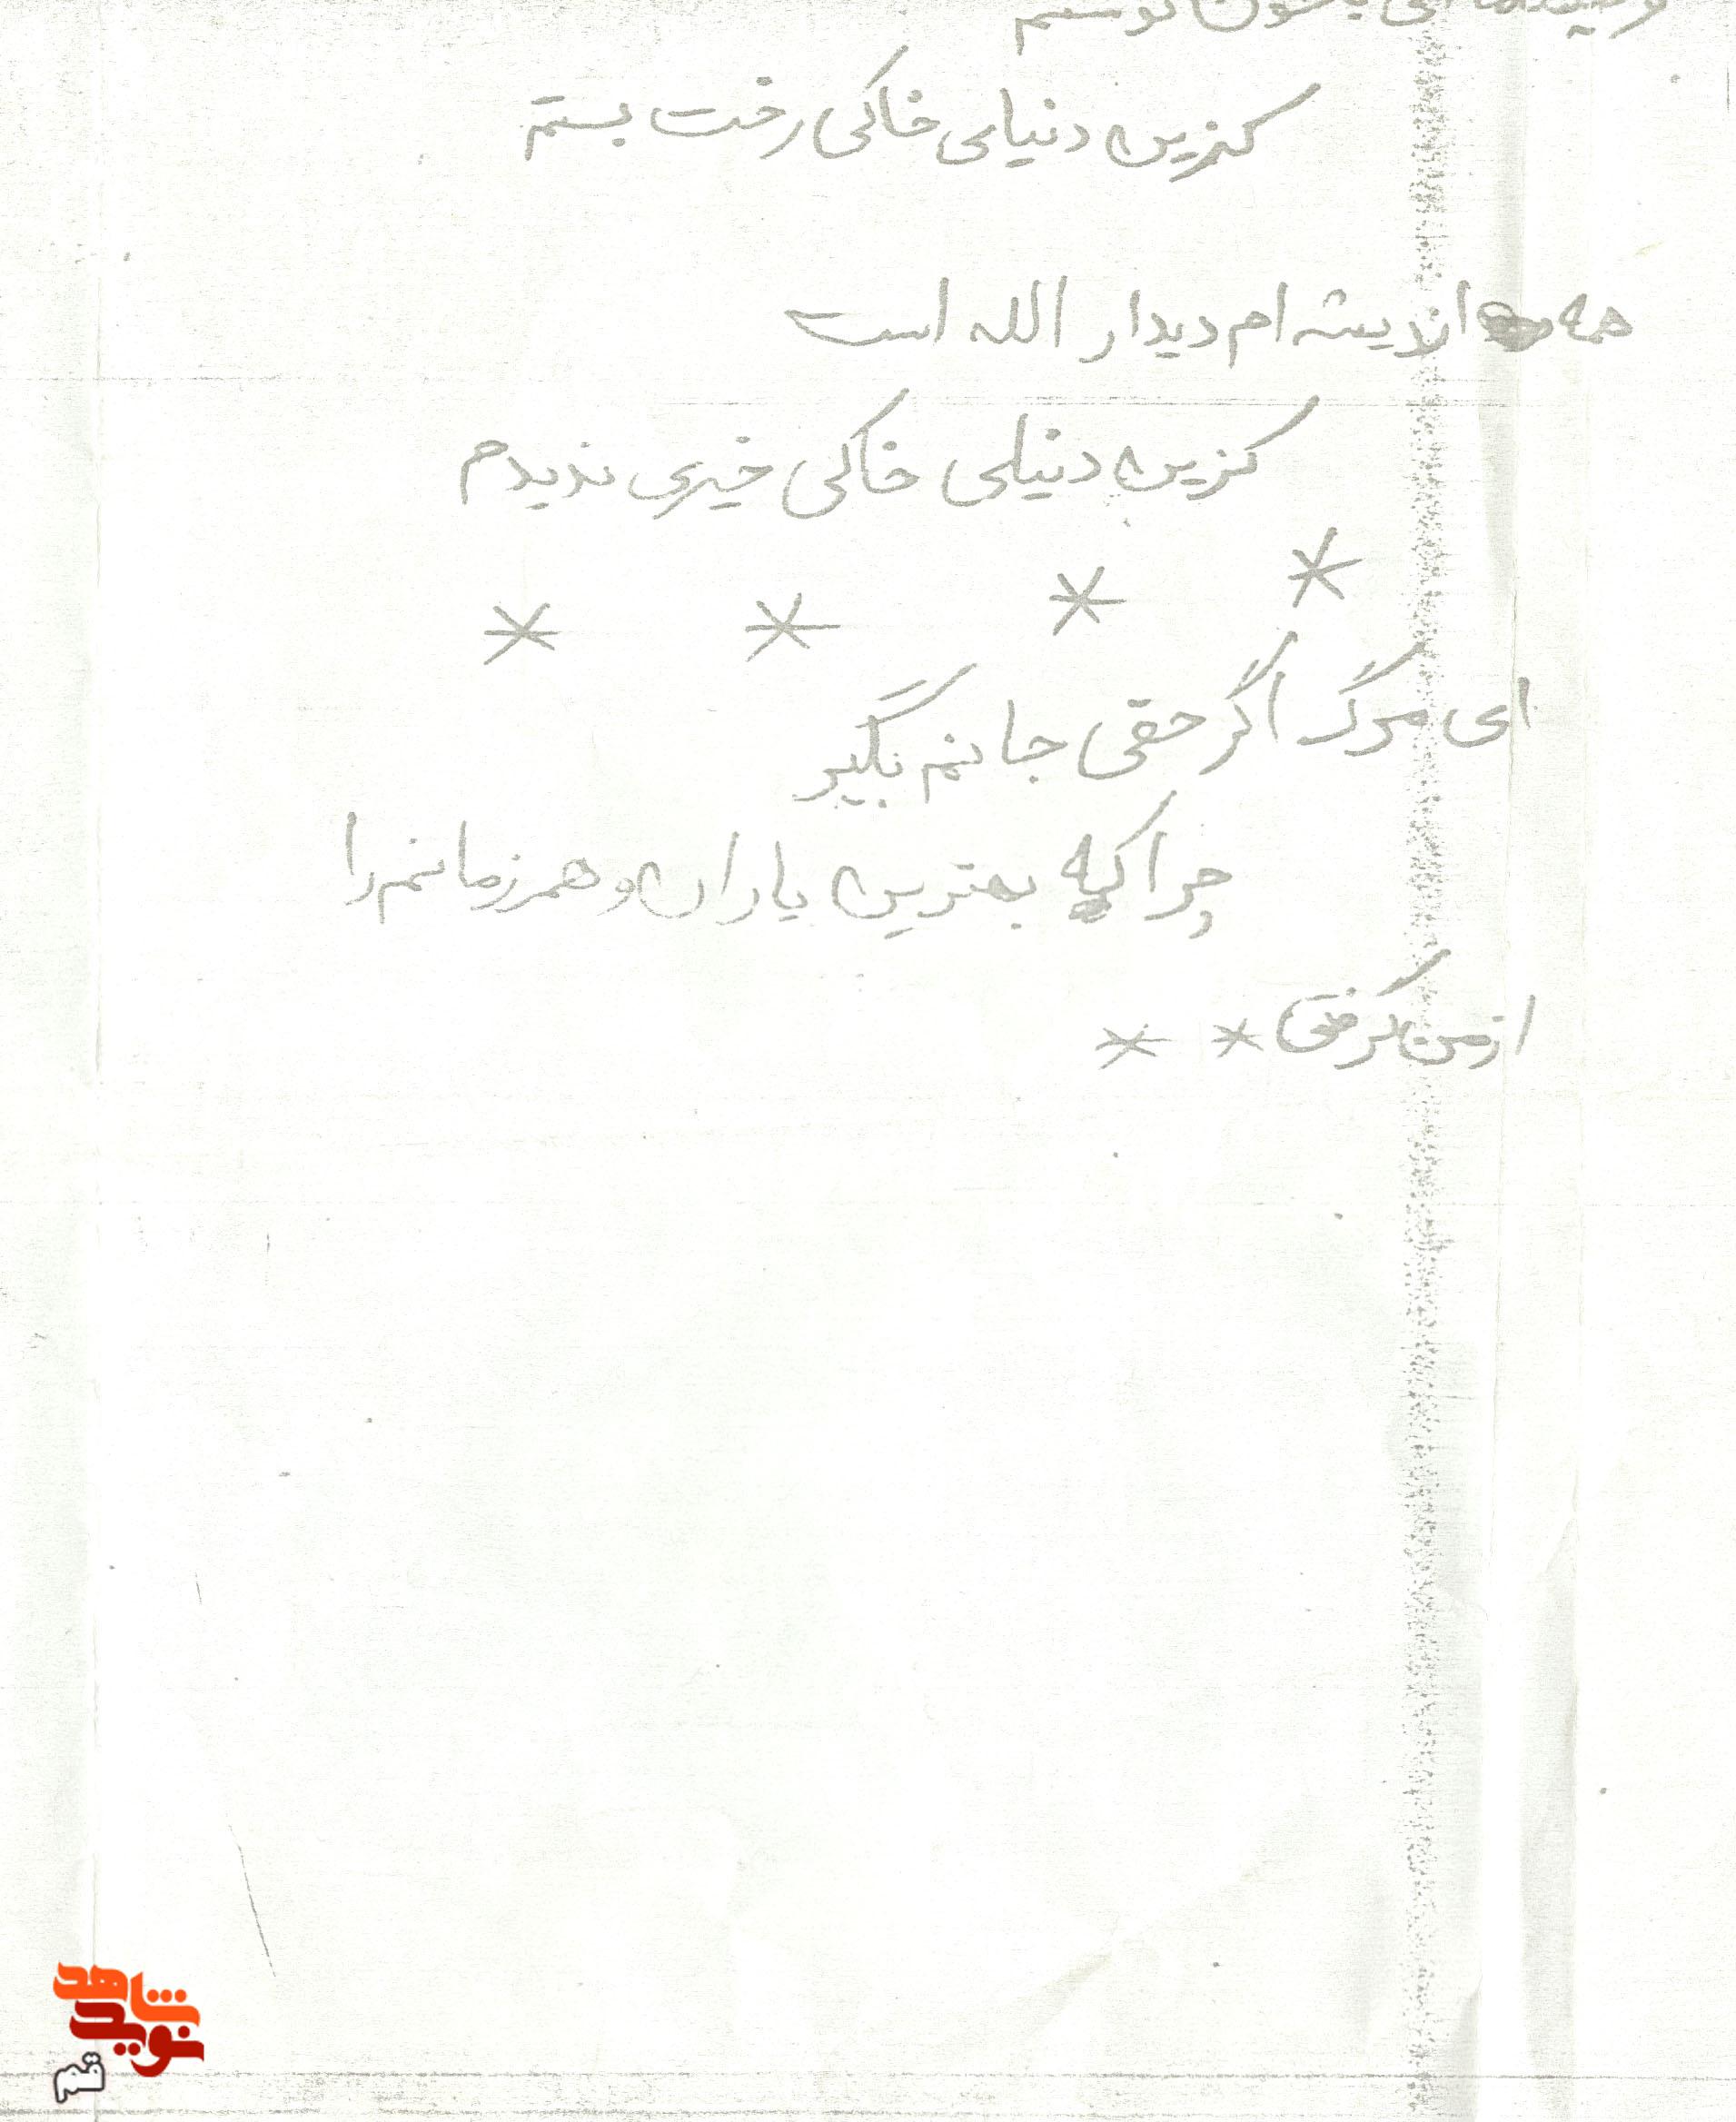 کزین دنیای خاکی رخت بستم
همه اندیشه ام دیدار الله است
کزین دنیای خاکی خیری ندیدم
* * * *
ای مرگ اگر حقی جانم بگیر
چرا که بهترین یاران و همرزمانم را
از من گرفتی * *
شاهد
نوید
قم